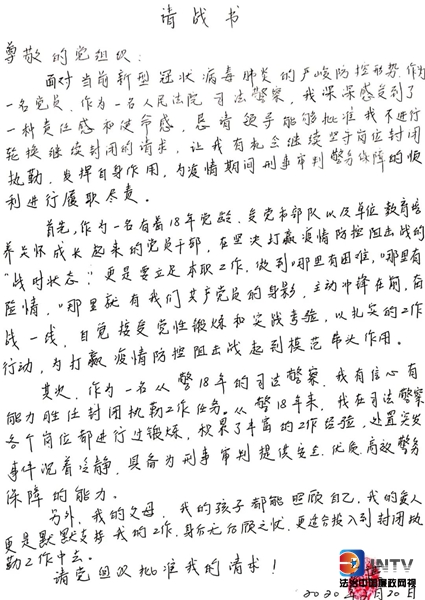 请战书
尊敬的党组织：
面对当前新型冠状病毒肺炎的严峻防控形势，作为
一名党员，作为一名人民法院司法警察，我深深感受到了
一种责任感和使命感，恳请领导能够批准我不进行
轮换继续封闭的请求，让我有机会继续坚守岗位封闭
执勤，发挥自身作用，为疫情期间刑事审判警务保障的顺
利进行履职尽责。
首先，作为一名有着18年党龄，受党和部队以及单位教育培
养关怀成长起来的党员干部，在坚决打赢疫情防控阻击战的
“战时状态”，更是要立足本职工作，做到“哪里有困难，哪里有
险情，哪里就有我们共产党员的身影，主动冲锋在前，奋
战一线，自觉接受党性锻炼和实战考验，以扎实的工作
行动，为打赢疫情防控阻击战起到模范带头作用。
其次，作为一名从警18年的司法警察，我有信心有
能力胜任封闭执勤工作任务。从警18年来，我在司法警察
各个岗位都进行过锻炼，积累了丰富的工作经验，处置突发
事件沉着冷静，具备为刑事审判提供安全、优质、高效警务
保障的能力。
另外，我的父母，我的孩子都能照顾自己，我的爱人
更是默默支持我的工作，身后无后顾之忧，更适合投入到封闭执
勤工作中去。
请党组织批准我的请求！
INTV
法治中国廉政网视
2020年 月20日